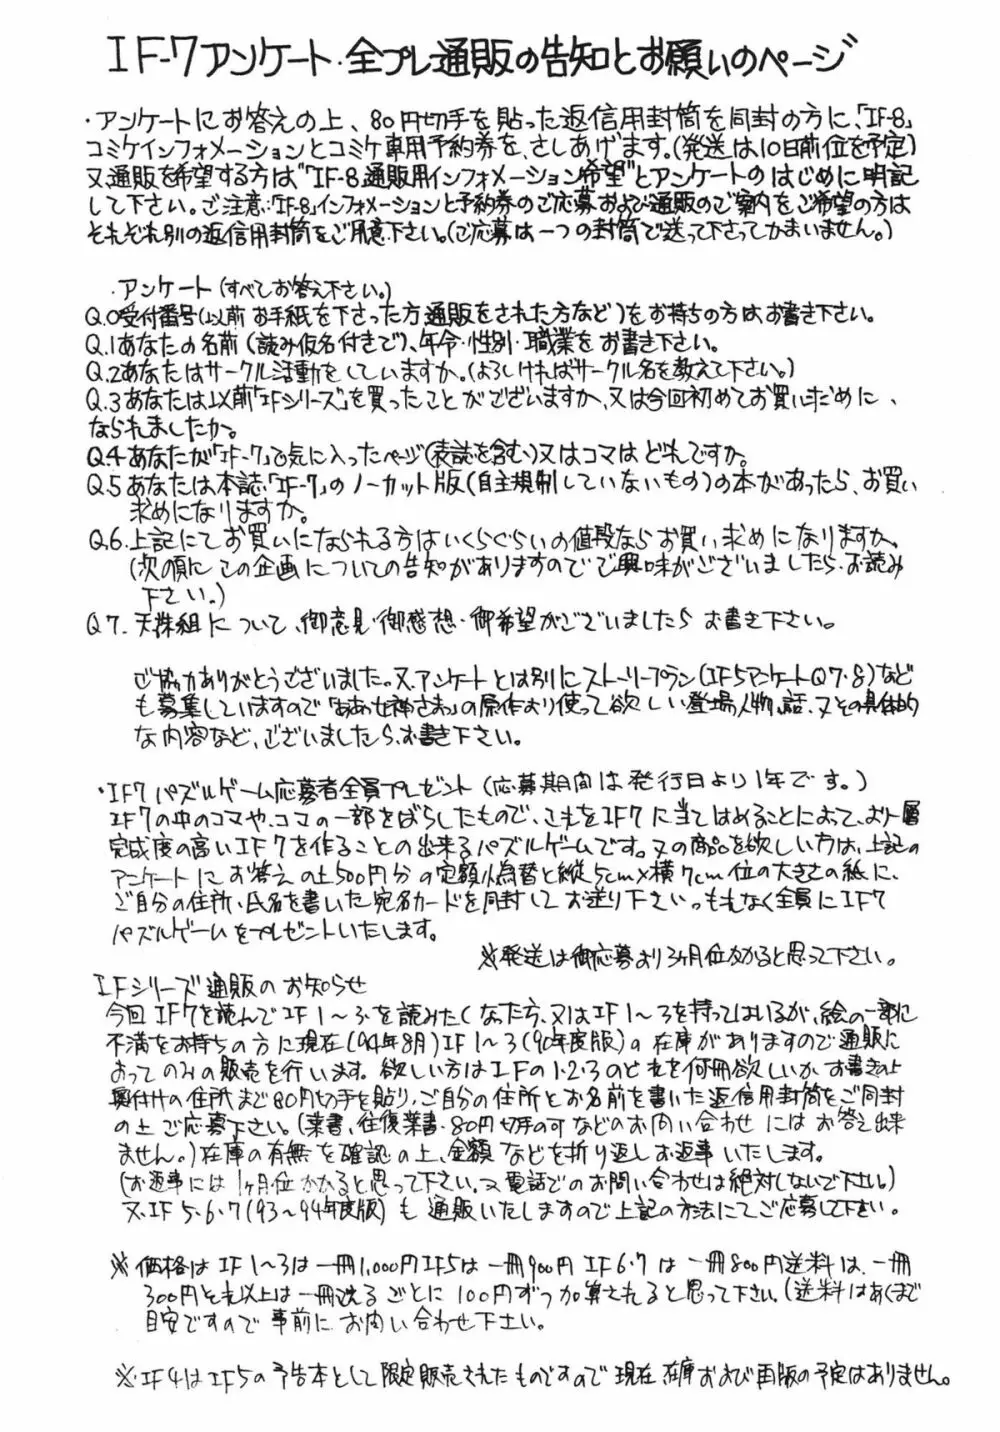 IF-7アンケート・全プレ通販の告知とお願いのページ
・アンケートにお答えの上、80円切手を貼った返信用封筒を同封の方に、「IF-8」
コミケインフォメーションとコミケ専用予約券を、さしあげます。(発送は10日前位を予定)
又通販を希望する方は"IF-8通販用インフォメーション希望"とアンケートのはじめに明記
して下さい。ご注意:「IF-8」インフォメーションと予約券のご応募および通販のご案内をご希望の方は
それぞれ別の返信用封筒をご用意下さい。(ご応募は一つの封筒で送って下さってかまいません。)
・アンケート(すべてお答え下さい。)
Q.0受付番号(以前お手紙を下さった方、通販をされた方など)をお持ちの方は、お書き下さい。
Q.1あなたの名前(読み仮名付きで)、年令・性別・職業をお書き下さい。
Q.2あなたはサークル活動をしていますか。(よろしければサークル名を教えて下さい。)
Q.3あなたは以前「IFシリーズ」を買ったことがございますか、又は今回初めてお買い求めに、
なられましたか。
Q.4あなたが「IF-7」で気に入ったページ(表誌を含む)又はコマはどれですか。
Q.5あなたは本誌「IF-7」のノーカット版(自主規制していないもの)の本があったら、お買い
求めになりますか。
Q.6.上記にてお買いになられる方はいくらぐらいの値段ならお買い求めになりますか。
(次の項にこの企画についての告知がありますのでご興味がございましたら、お読み
下さい。)
Q7. 天誅組について、御意見・御感想・御希望がございましたら お書き下さい。
ご協力ありがとうございました。又、アンケートとは別にストーリープラン(IF5アンケートQ7・8)など
も募集していますので「ああっ女神さまっ」の原作より使って欲しい登場人物、話、又その具体的
な内容など、ございましたら、お書き下さい。
・IF7パズルゲーム応募者全員プレゼント(応募期間は発行日より1年です。)
IF7の中のコマや、コマの一部をばらしたもので、これをIF7に当てはめることによって、より一層
完成度の高いIF7を作ることの出来るパズルゲームです。又の商品を欲しい方は、上記の
アンケートにお答えの上500円分の定額小為替と縦5cm×横7cm位の大きさの紙に、
ご自分の住所・氏名を書いた宛名カードを同封してお送り下さい。もれなく全員にIF7
パズルゲームをプレゼントいたします。
※発送は御応募より3ヶ月位かかると思って下さい。
IFシリーズ通販のお知らせ
今回IF7を読んでIF1～3を読みたくなった方、又はIF1～3を持ってはいるが、絵の一部に
不満をお持ちの方に現在(94年8月)IF1～3(90年度版)の在庫がありますので通販に
よってのみの販売を行います。欲しい方はIFの1・2・3のどれを何冊欲しいかお書きの上
奥付けの住所まで80円切手を貼り、ご自分の住所とお名前を書いた返信用封筒をご同封
の上ご応募下さい。(葉書、往復葉書・80円切手のみなどのお問い合わせにはお答え出来
ません。)在庫の有無を確認の上、金額などを折り返しお返事いたします。
(お返事には1ヶ月位かかると思って下さい。又電話でのお問い合わせは絶対しないで下さい。)
又、IF5・6・7(93～94年度版)も通販いたしますので上記の方法にてご応募して下さい。
※価格はIF1～3は一冊1,000円IF5は一冊900円IF6・7は一冊800円送料は、一冊
300円それ以上は一冊送るごとに100円ずつ加算されると思って下さい。(送料はあくまで
目安ですので事前にお問い合わせ下さい。
※IF4はIF5の予告本として限定販売されたものですので現在在庫および再版の予定はありません。